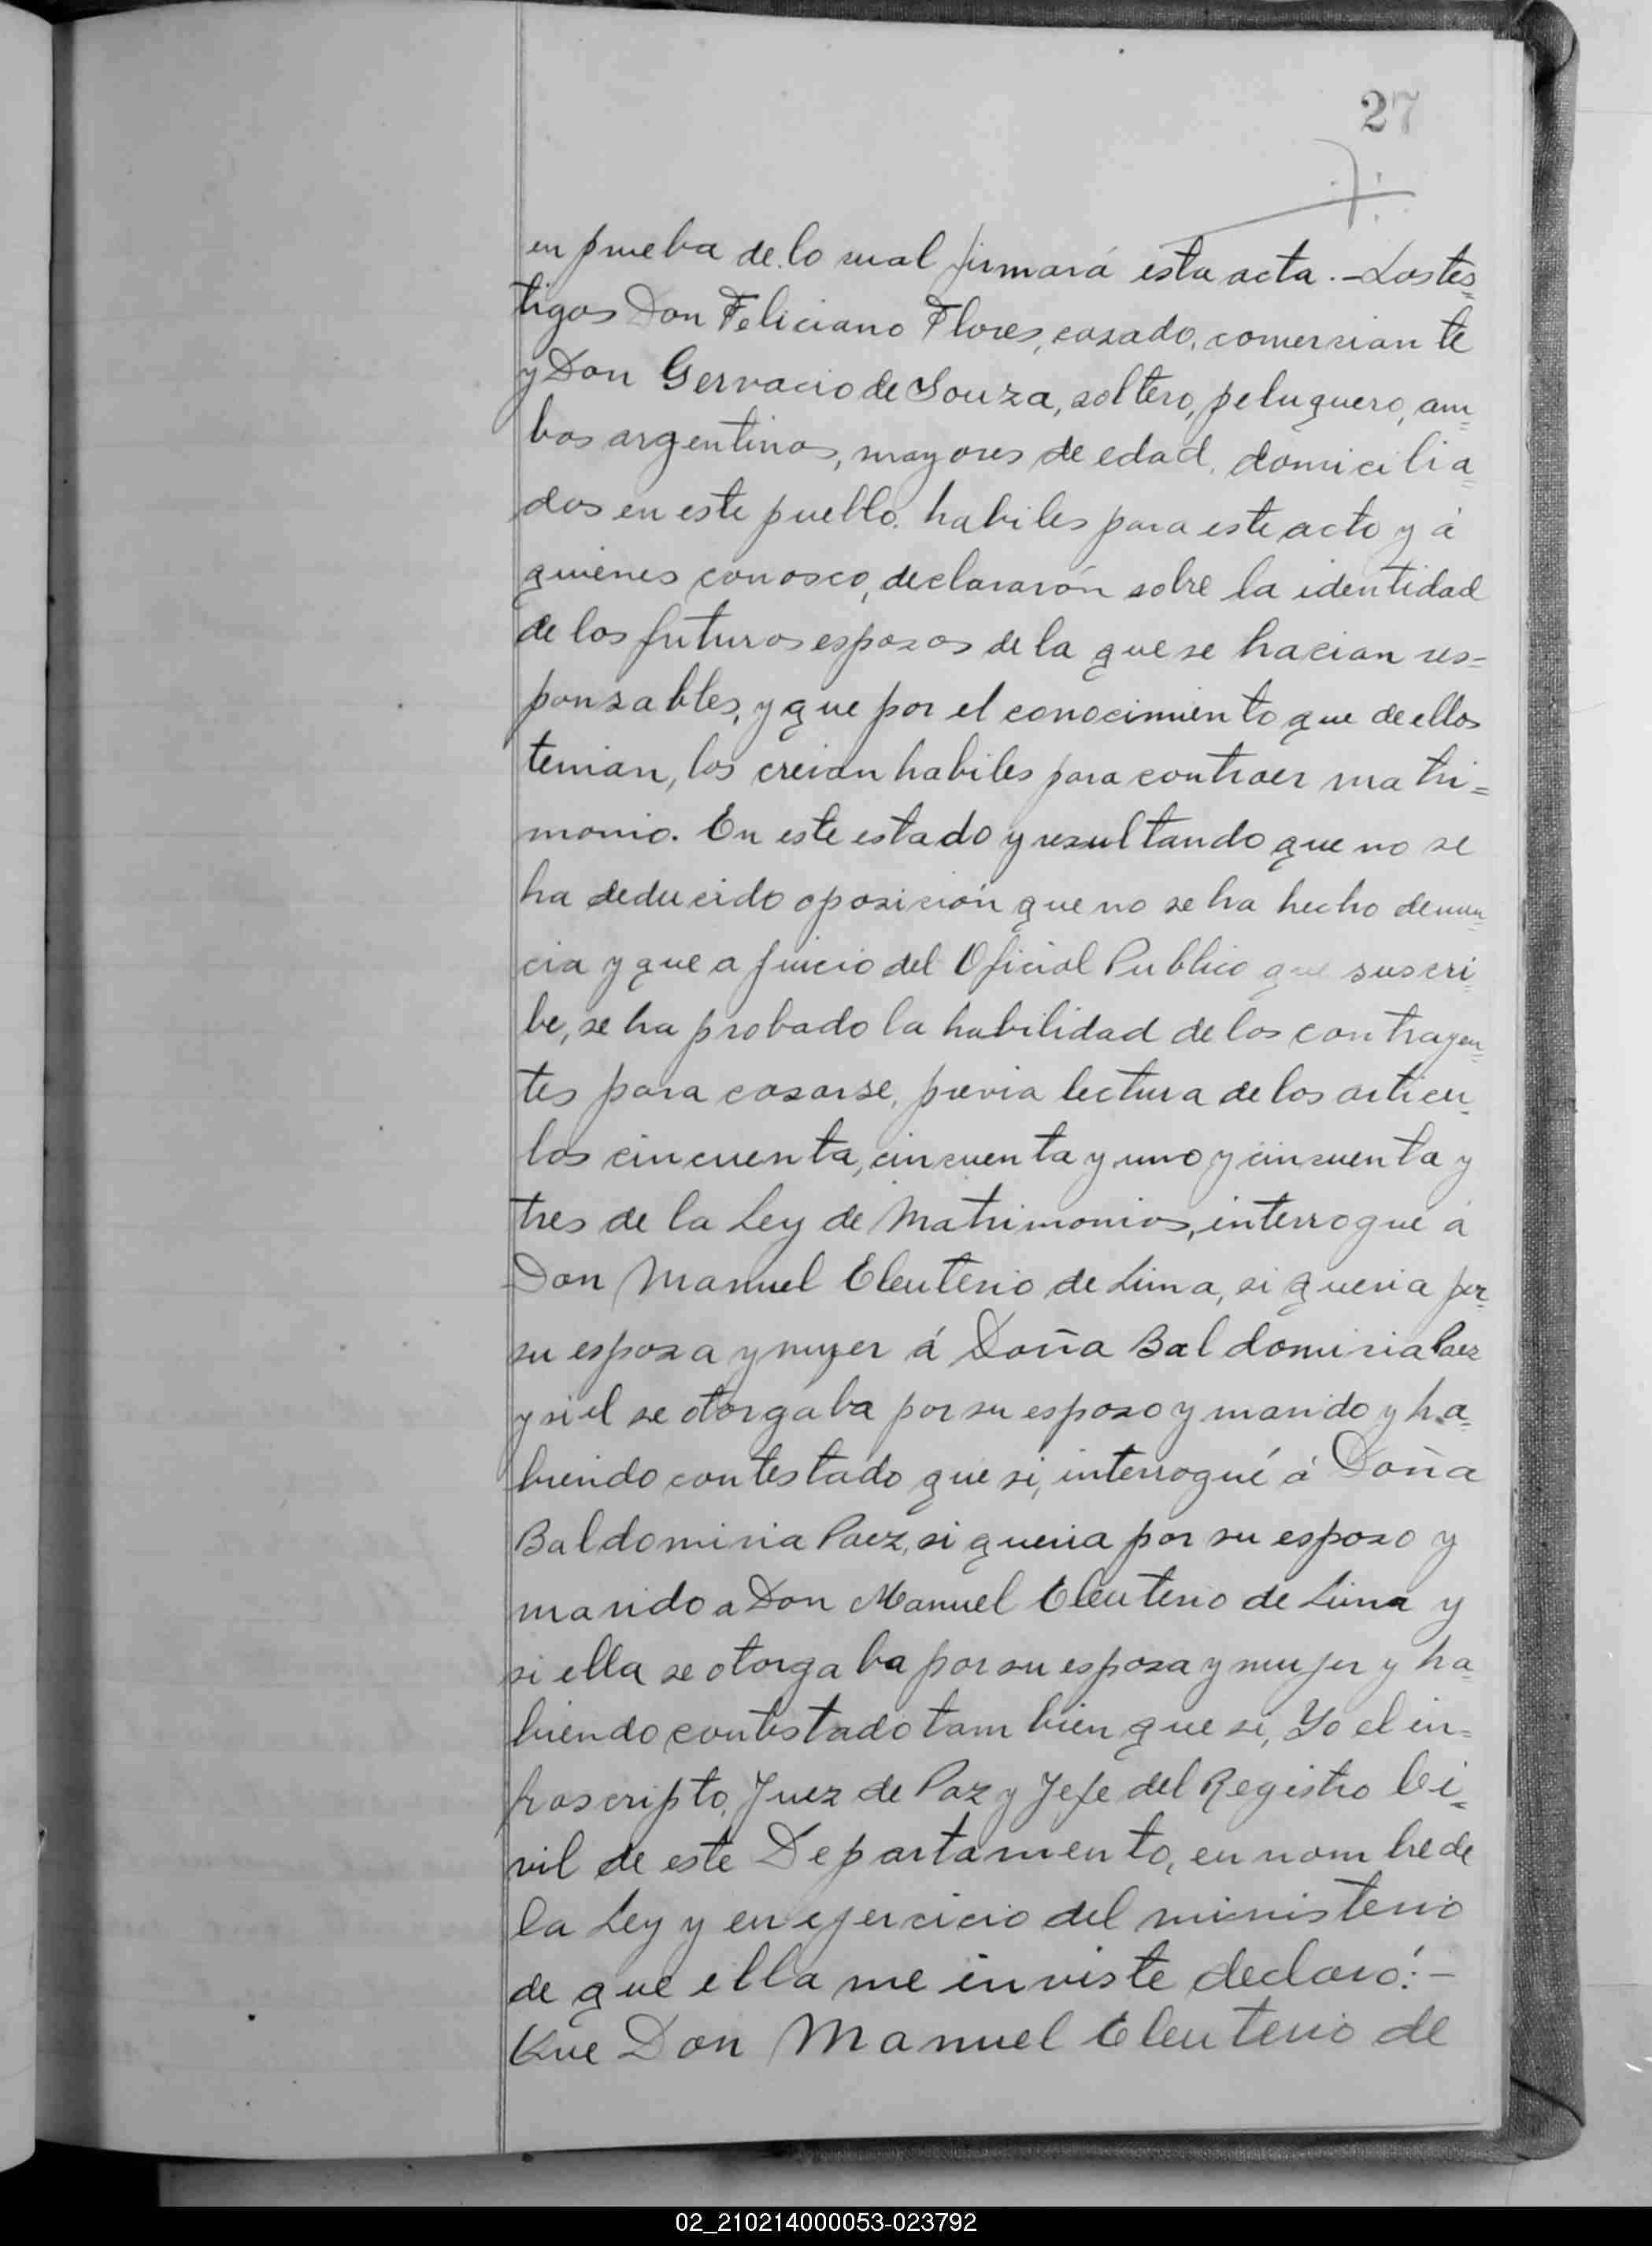 27
en prueba de lo cual firmará esta acta.-Los tes=
tigos Don Feliciano Flores, casado, comerciante
y Don Gervacio de Souza, soltero, peluquero, am=
bos argentinos, mayores de edad, domicilia=
dos en este pueblo, habiles para este acto y á
quienes conosco, declararón sobre la identidad
de los futuros esposos de la que se hacian res=
ponsables, y que por el conocimiento que de ellos
tenian, los creian habiles para contraer matri=
monio. En este estado y resultando que no se
ha deducido oposición que no se ha hecho denun=
cia y que a juicio del Oficial Publico que suscri=
be, se ha probado la habilidad de los contrayen=
tes para casarse, previa lectura de los articu=
los cincuenta, cincuenta y uno y cincuenta y
tres de la Ley de Matrimonios, interrogue á
Don Manuel Eleuterio de Lima, si queria por
su esposa y mujer á Doña Baldomiria Paez
y si el se otorgaba por su esposo y marido y ha=
biendo contestado que si, interrogué á Doña
Baldomiria Paez, si queria por su esposo y
marido a Don Manuel Eleuterio de Lima y
si ella se otorgaba por su esposa y mujer y ha=
biendo contestado tambien que si, Yo el in=
frascripto, Juez de Paz y Jefe del Registro Ci=
vil de este Departamento, en nombre de
la Ley y en ejercicio del ministerio
de que ella me inviste declaró:-
Que Don Manuel Eleuterio de
02_210214000053-023792